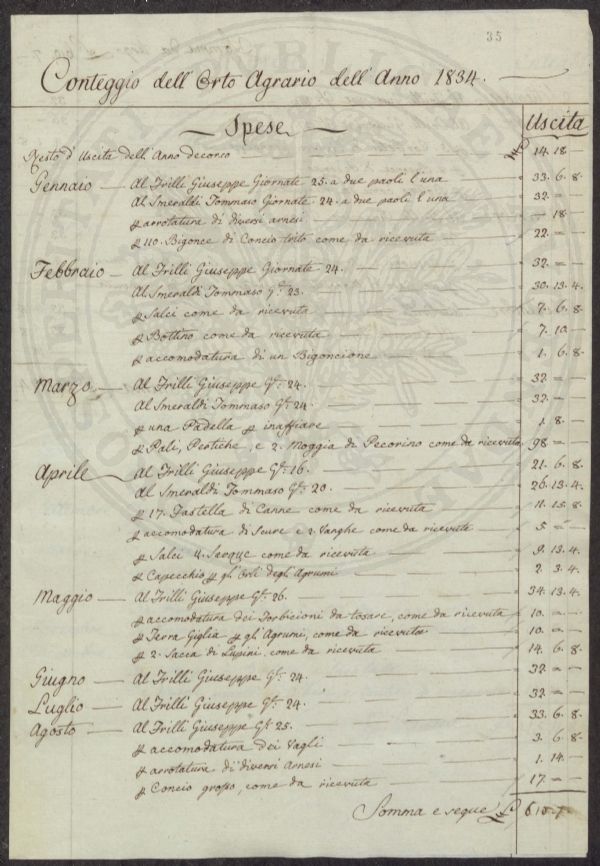 35
Conteggio dell'Orto Agrario dell'Anno 1834.
Spese Uscita
Resto d'Uscita dell'Anno decorso 14. 18 -
Gennaio - Al Frilli Giuseppe Giornate 25. a due paoli l'una 33. 6. 8.
Al Smeraldi Tommaso Giornate 24. a due paoli l'una 32 = -
p arrotatura di diversi arnesi - 18. -
p 110. Bigonce di Concio trito come da ricevuta 22 = -
Febbraio - Al Frilli Giuseppe Giornate 24. 32 = -
Al Smeraldi Tommaso Gte. 23. 30. 13. 4.
p Salci come da ricevuta 7. 6. 8.
p Bottino come da ricevuta 7. 10. -
p accomodatura di un Bigoncione 1. 6. 8.
Marzo - Al Frilli Giuseppe Gte. 24. 32 = -
Al Smeraldi Tommaso Gte. 24. 32 = -
p una Padella p inaffiare 1. 8. -
p Pali, Pertiche, e 2. Moggia di Pecorino come da ricevuta 98 = -
Aprile - Al Frilli Giuseppe Gte. 16. 21. 6. 8.
Al Smeraldi Tommaso Gte. 20. 26. 13. 4.
p 17. Fastella di Canne come da ricevuta 11. 15. 8.
p accomodatura di Scure e 2. Vanghe come da ricevuta 5 = -
p Salci 4. come da ricevuta 9. 13. 4.
p Capecchio p gl'Orli degli Agrumi 2. 3. 4.
Maggio - Al Frilli Giuseppe Gte. 26. 34. 13. 4.
p accomodatura dei Forbicioni da tosare, come da ricevuta 10. = -
p Terra Giglia p gl'Agrumi, come da ricevuta 10. = -
p 2. Sacca di Lupini, come da ricevuta 14. 6. 8.
Giugno - Al Frilli Giuseppe Gte. 24. 32 = -
Luglio - Al Frilli Giuseppe Gte. 24. 32 = -
Agosto - Al Frilli Giuseppe Gte. 25. 33. 6. 8.
p accomodatura dei Vagli 3. 6. 8.
p arrotatura di diversi Arnesi 1. 14. -
p Concio grosso, come da ricevuta 17 = -
Somma e segue